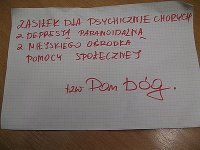 ZASIŁEK DLA PSYCHICZNIE CHORYCH
Z DEPRESJĄ PARANOIDALNĄ
Z MIEJSKIEGO OŚRODKA
POMOCY SPOŁECZNEJ
tzw Pan bóg.